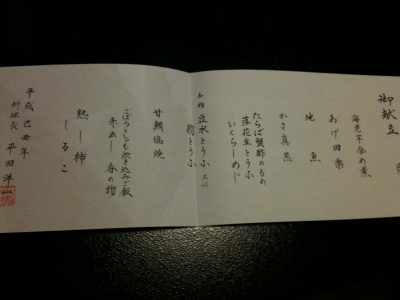 御献立
海老芋金め煮
あげ田楽
地魚
かき真蒸
たらば蟹酢のもの
落花生とうふ
いくらしめじ
豆水とうふ 又は
鮟とうふ
甘鯛塩焼
ごぼうとじゃこ炊き込みご飯
赤出し 香の物
熟し柿
しるこ
平成己丑年
料理長 平田